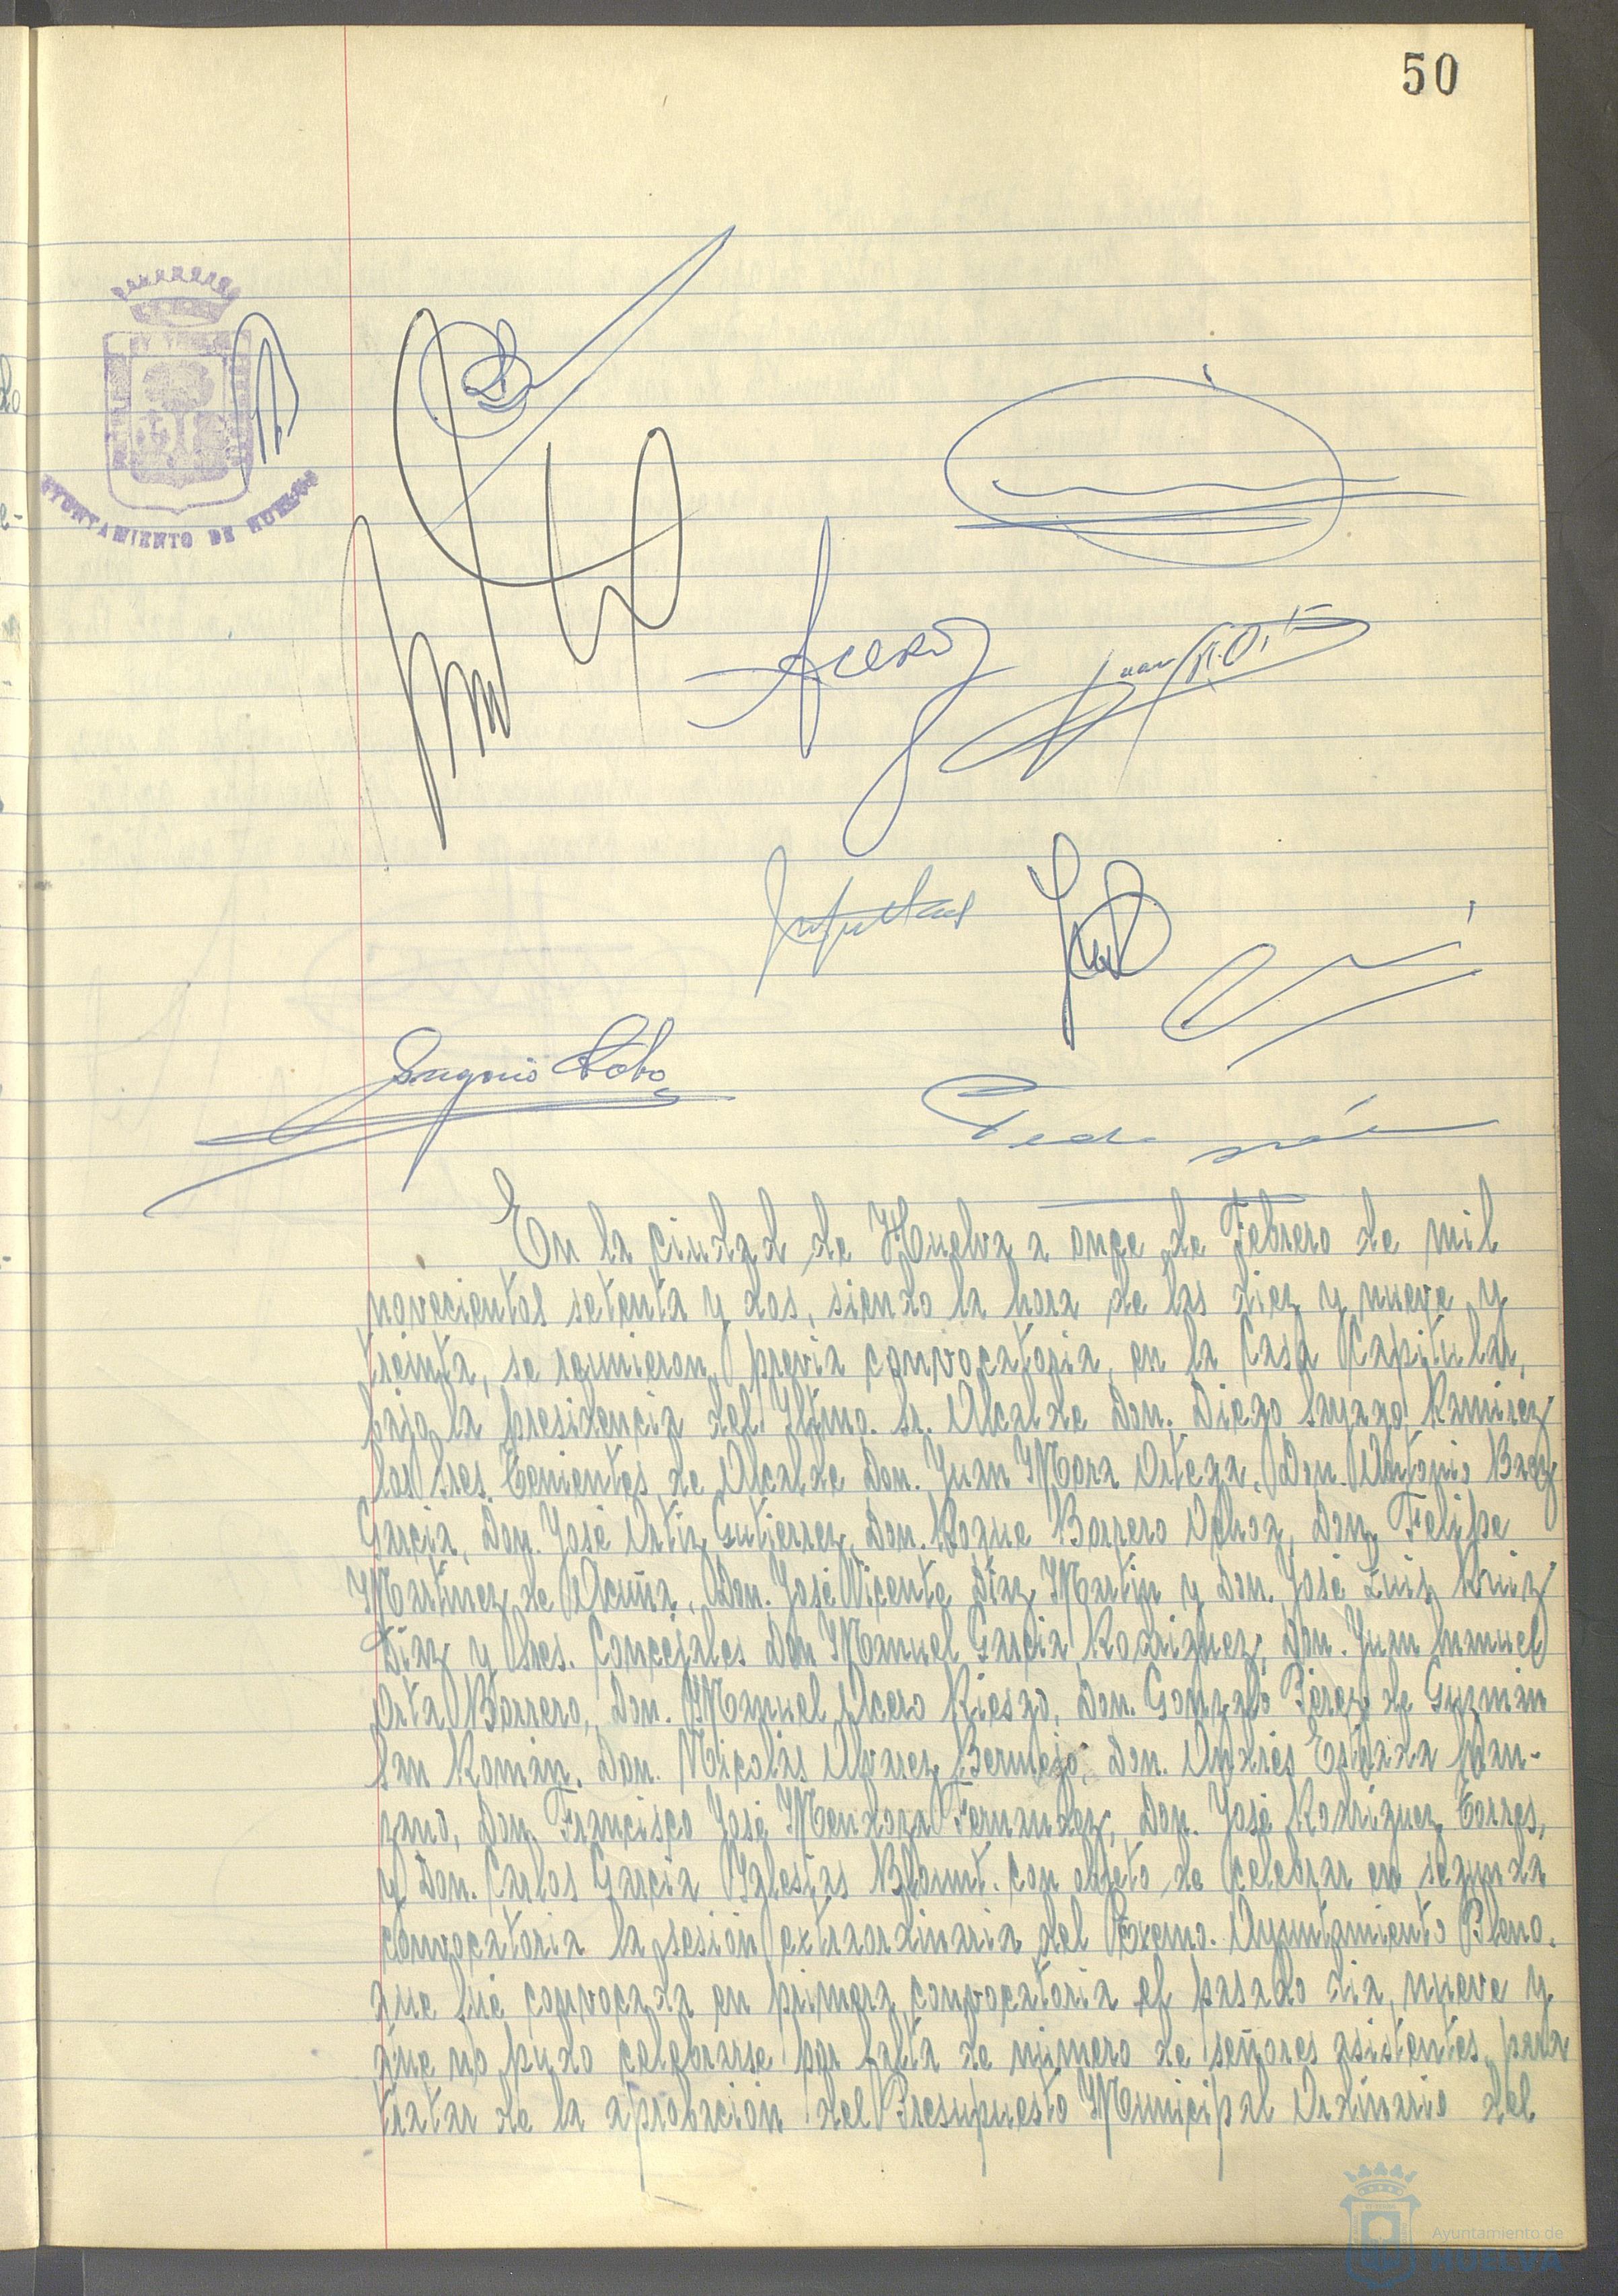 50
AYUNTAMIENTO DE HUELVA
Acero
Juan M. Orta
Gregorio Lobo
Pedro
En la ciudad de Huelva a once de Febrero de mil
novecientos setenta y dos, siendo la hora de las diez y nueve y
treinta, se reunieron, previa convocatoria, en la Casa Capitular,
bajo la presidencia del Iltmo. Sr. Alcalde Don. Diego Sayago Ramirez
los Sres. Tenientes de Alcalde Don. Juan Mora Ortega, Don. Antonio Baez
Garcia, Don. José Ortiz Gutierrez, Don. Roque Borrero Ochoa, Don. Felipe
Martinez de Acuña, Don. José Vicente Díaz Martin y Don. José Luis Ruiz
Díaz y Sres. Concejales Don Manuel Garcia Rodriguez, Don. Juan Manuel
Orta Borrero, Don. Manuel Acero Riesgo, Don. Gonzalo Pérez de Guzmán
San Román, Don. Nicolás Alvarez Bermejo, Don. Andrés Estrada Man-
zano, Don Francisco José Mendoza Fernandez, Don. José Rodríguez Torres,
y Don. Carlos Garcia Yglesias Blount. con objeto de celebrar en segunda
convocatoria la sesión extraordinaria del Excmo. Ayuntamiento Pleno.
que fué convocada en primera convocatoria el pasado dia, nueve y
que no pudo celebrarse por falta de número de señores asistentes, para
tratar de la aprobación del Presupuesto Municipal Ordinario del
Ayuntamiento de
HUELVA